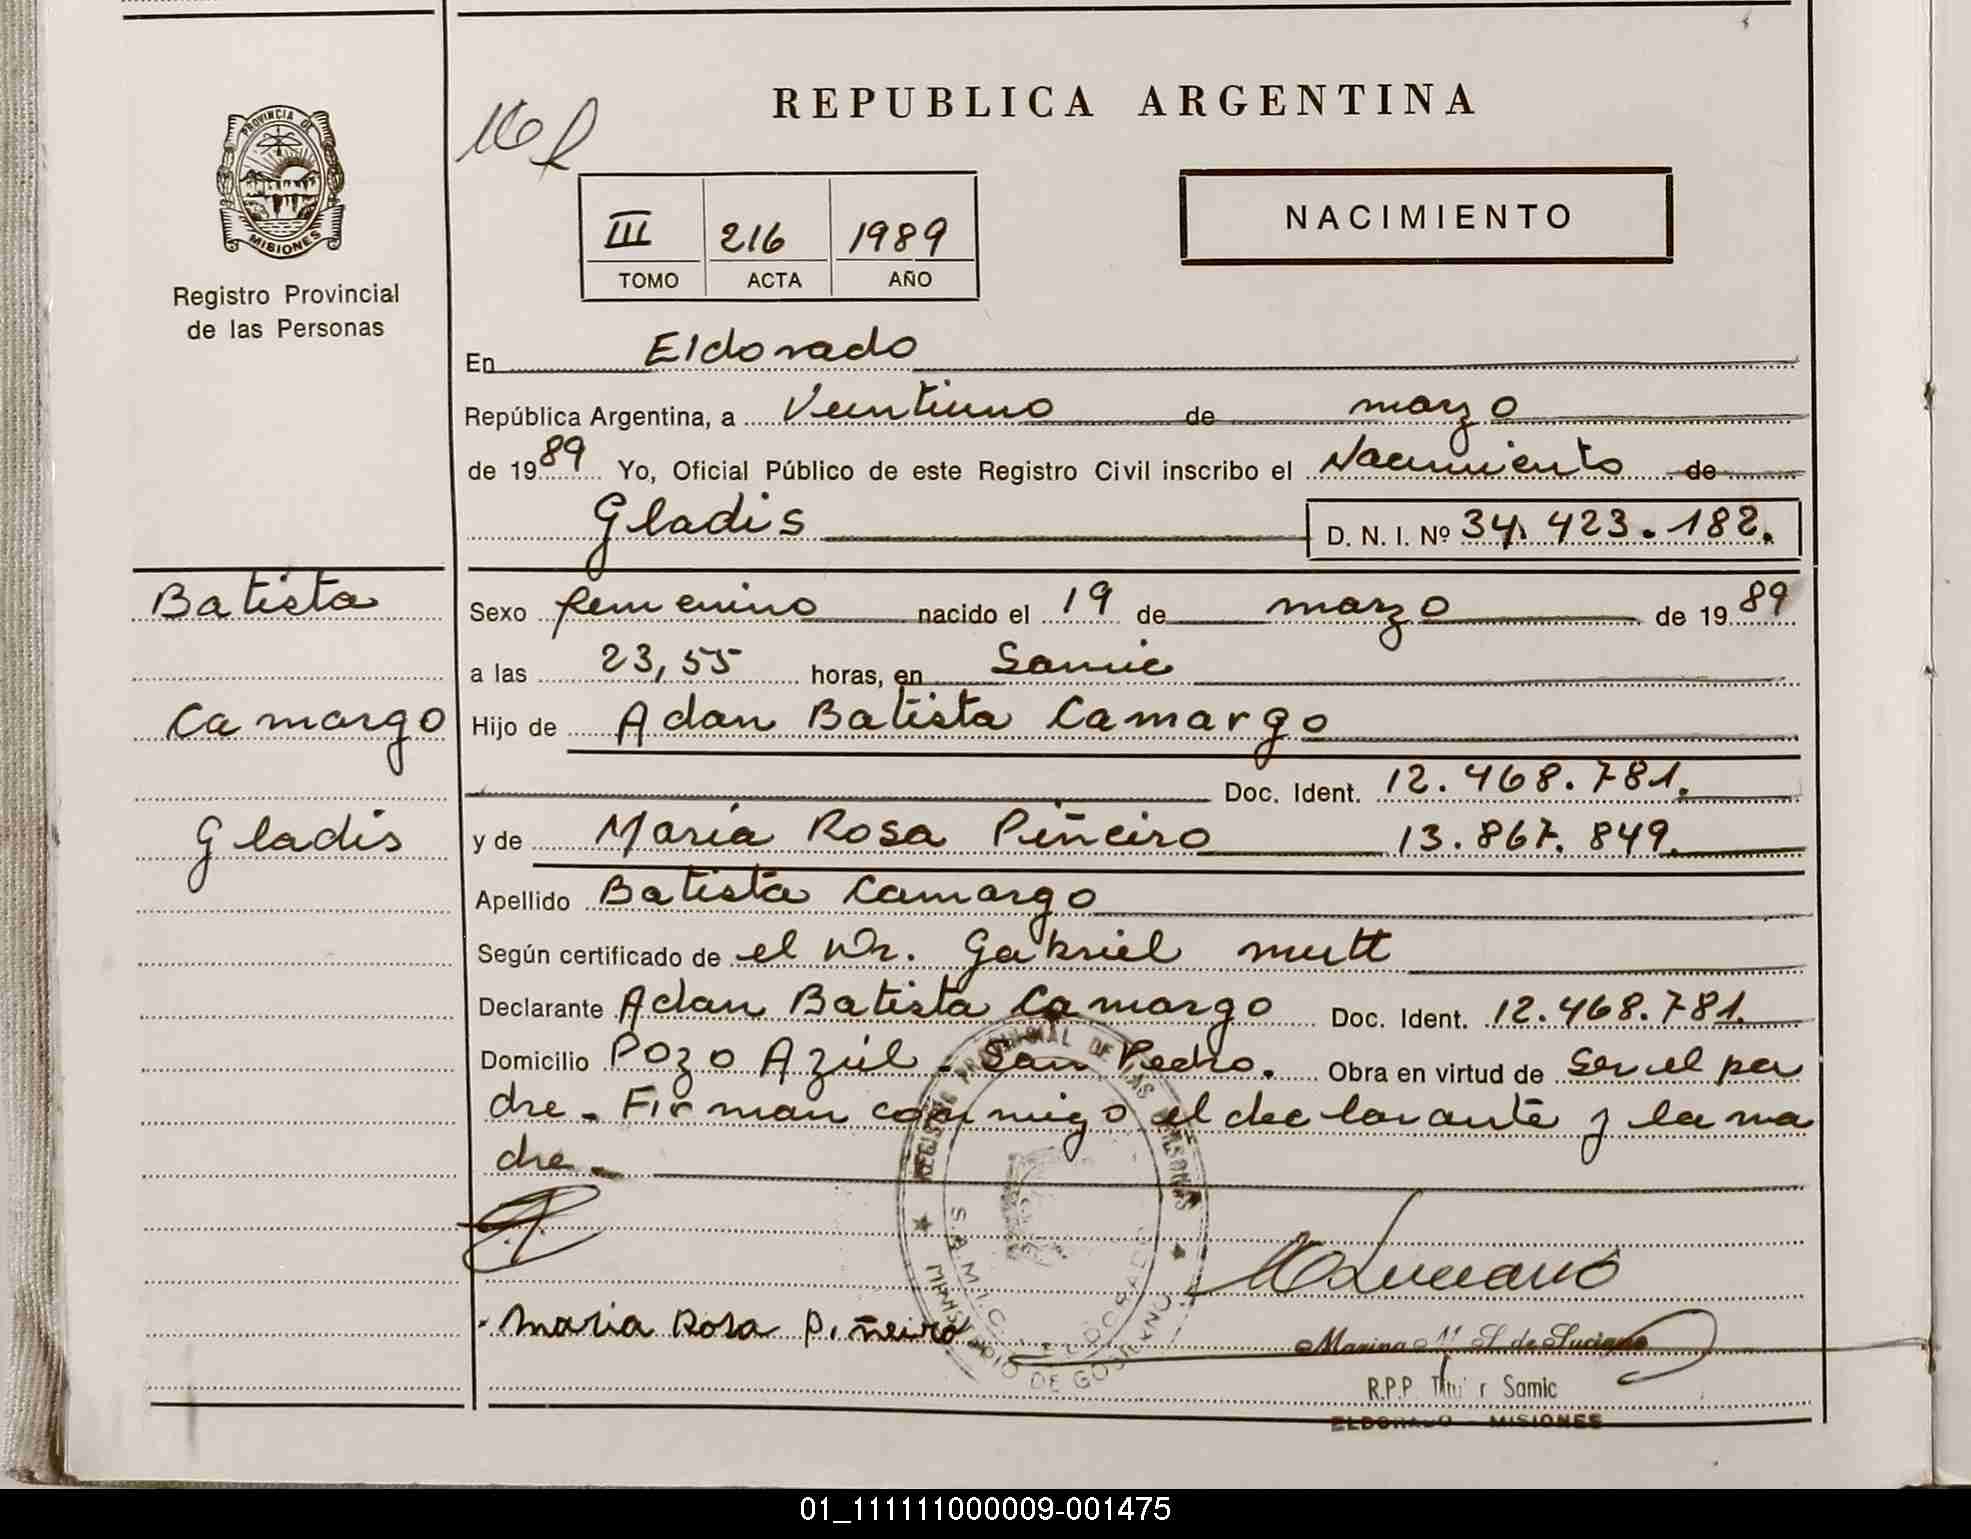 REPUBLICA ARGENTINA
PROVINCIA DE
MISIONES
Registro Provincial
de las Personas
III 216 1989
TOMO ACTA AÑO
NACIMIENTO
En Eldorado
República Argentina, a Veintiuno de marzo
de 1989 Yo, Oficial Público de este Registro Civil inscribo el Nacimiento de
Gladis D. N. I. Nº 34.423.182.
Batista
Camargo
Gladis
Sexo femenino nacido el 19 de marzo de 1989
a las 23,55 horas, en Samic
Hijo de Adan Batista Camargo
Doc. Ident. 12.468.781.
y de María Rosa Piñeiro 13.867.849.
Apellido Batista Camargo
Según certificado de el Dr. Gabriel mutt
Declarante Adan Batista Camargo Doc. Ident. 12.468.781.
Domicilio Pozo Azúl - San Pedro. Obra en virtud de ser el pa
dre - Firman conmigo el declarante y la ma
dre -
REGISTRO PROVINCIAL DE LAS PERSONAS
S.A.M.I.C. ELDORADO
Maria Rosa Piñeiro
Marina M. S. de Luciano
R.P.P. Samic
ELDORADO - MISIONES
01_111111000009-001475